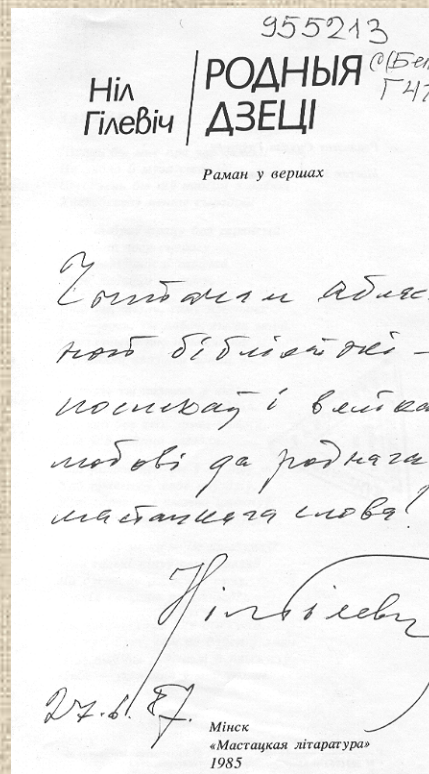 955213
Ніл Гілевіч
РОДНЫЯ ДЗЕЦІ
С(Бел
Г47
Раман у вершах
Чытачам аблас-
ной бібліятэкі –
поспехаў і вялікай
любові да роднага
мастацкага слова!
Ніл Гілевіч
27.6.87.
Мінск
«Мастацкая літаратура»
1985